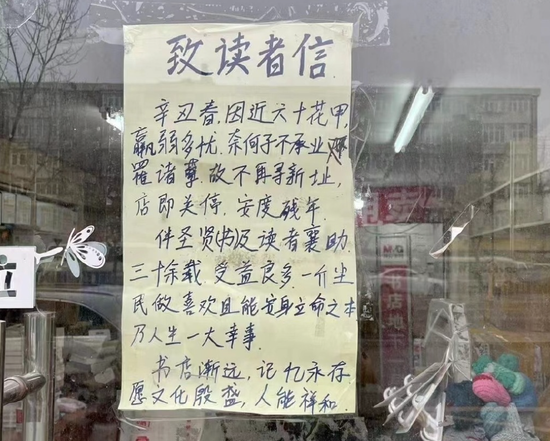 致读者信
辛丑春,因近六十花甲,
羸弱多忧,奈何子不承业
罹诸,故不再寻新址,
店即关停,安度残年.
伴圣贤书及读者襄助
三十余载,受益良多.一介尘
民做喜欢且能安身立命之本
乃人生一大幸事.
书店渐远,记忆永存
愿文化殷盛,人能祥和.
M&G
书店地下